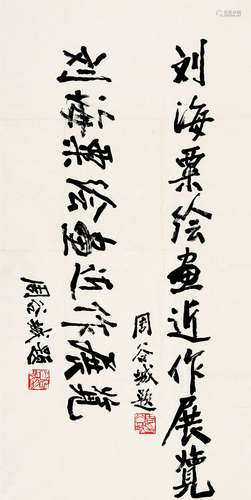 刘海粟绘画近作展览
周谷城题
刘海粟绘画近作展览
周谷城题